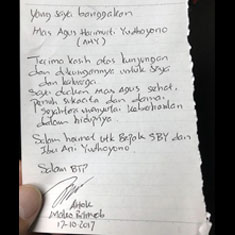 yang saya banggakan
Mas Agus Harimurti Yudhoyono
(AHY)
Terima kasih atas kunjungan
dan dukungannya untuk saya
dan keluarga
Saya doakan mas Agus sehat,
penuh sukacita dan damai
sejahtera menyertai
dalam hidupnya.
Salam hormat utk Bapak SBY dan
Ibu Ani Yudhoyono
Salam BTP
Ahok
Mako Brimob
17-10-2017